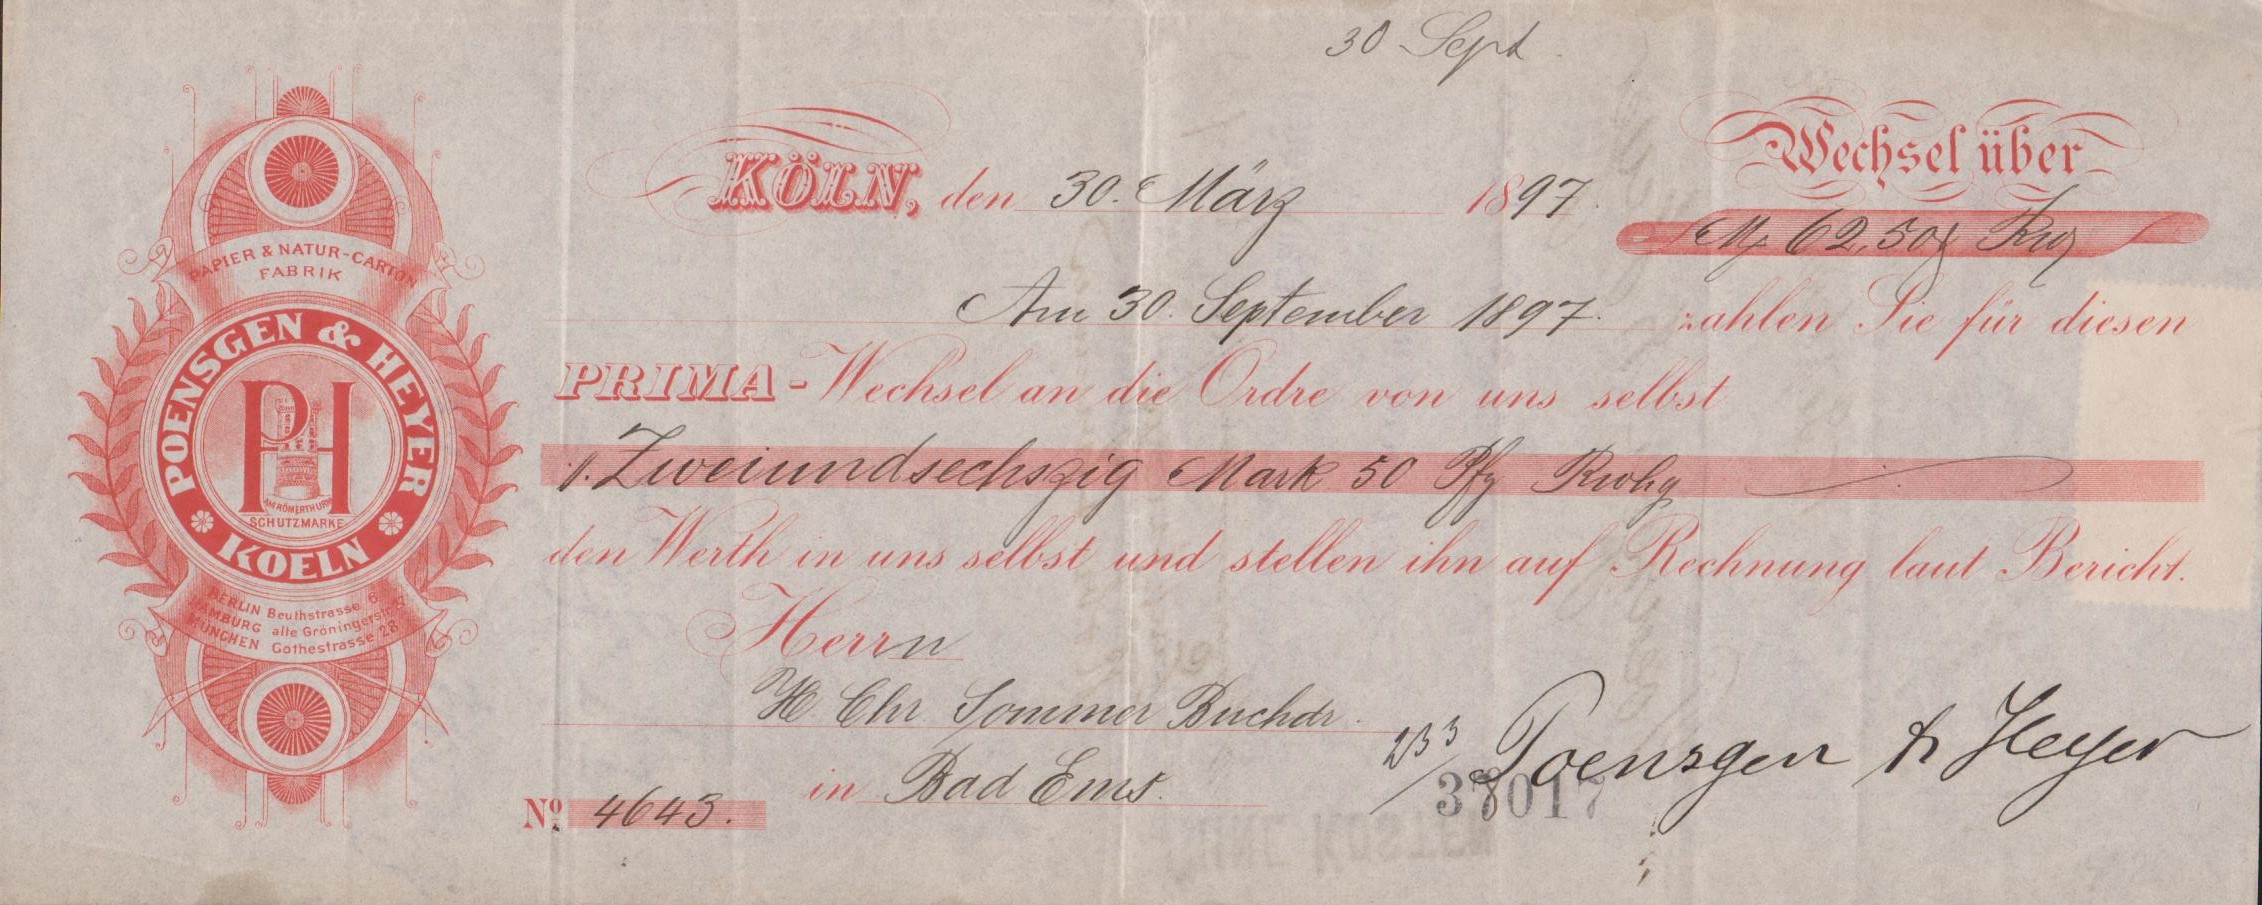 30 Sept.
PAPIER & NATUR-CARTON
FABRIK
POENSGEN & HEYER
PH
AM RÖMERTHURM
SCHUTZMARKE
KOELN
BERLIN Beuthstrasse 6
HAMBURG alte Gröningerstr.
MÜNCHEN Göthestrasse 28
KÖLN, den 30. März 1897.
Wechsel über
M 62,50
Am 30. September 1897. zahlen Sie für diesen
PRIMA-Wechsel an die Ordre von uns selbst
Zweiundsechszig Mark 50 Pfg
den Werth in uns selbst und stellen ihn auf Rechnung laut Bericht.
Herrn
H. Chr. Sommer Buchdr.
in Bad Ems.
No 4643.
Poensgen & Heyer